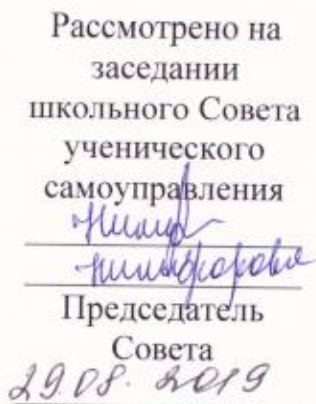 Рассмотрено на
заседании
школьного Совета
ученического
самоуправления
Председатель
Совета
29.08.2019